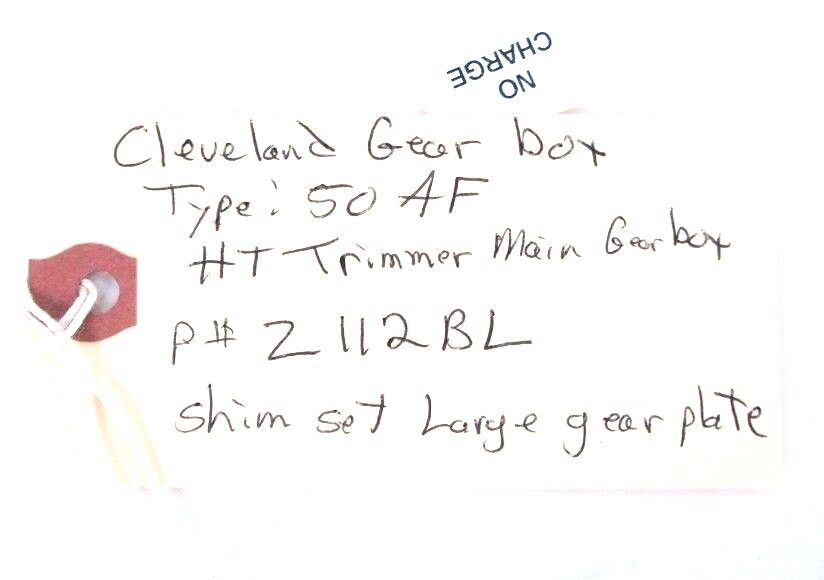 NO
CHARGE
Cleveland Gear box
Type: 50 AF
HT Trimmer Main Gearbox
P# Z112BL
Shim set Large gear plate